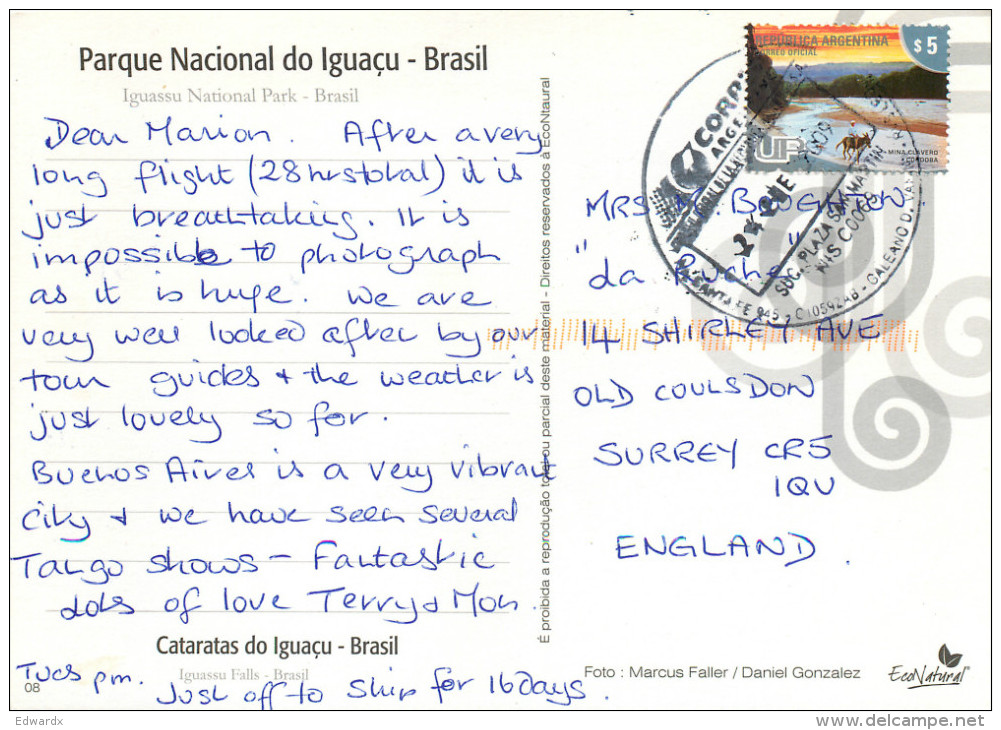 Parque Nacional do Iguaçu - Brasil
Iguassu National Park - Brasil
Dear Marion. After a very
long flight (28hrs total) it is
just breathtaking. It is
impossible to photograph
as it is huge. We are
very well looked after by our
tour guides + the weather is
just lovely so far.
Buenos Aires is a very vibrant
city + we have seen several
Tango shows - Fantastic
Lots of love Terry & Mon.
Cataratas do Iguaçu - Brasil
Iguassu Falls - Brasil
Tues pm.
Just off to ship for 16 days.
08
É proibida a reprodução total ou parcial deste material - Direitos reservados à EcoNtaural
REPÚBLICA ARGENTINA
CORREO OFICIAL
$5
MINA CLAVERO
CÓRDOBA
UP
CORR
ARGE
24
2009
SUC. PLAZA SAN MARTIN
NIS C0069
C1059ZAB - GALEANO D.
MRS M. BOUGHTON
"La Ruche"
14 SHIRLEY AVE
OLD COULSDON
SURREY CR5
1QU
ENGLAND.
Foto : Marcus Faller / Daniel Gonzalez
EcoNatural
Edwardx
delcampe.net